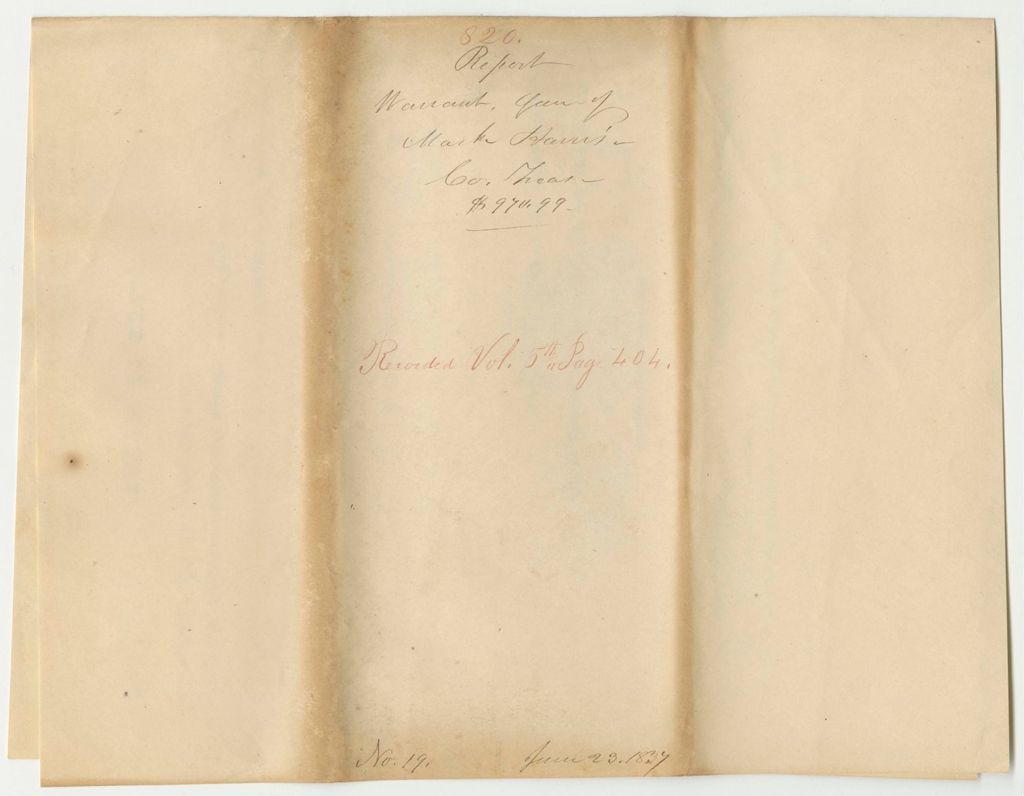 820.
Report
Warrant, favr of
Mark Harris
Co. Treas
$970.99
Recorded Vol. 5th Page 404.
No. 19. June 23. 1837